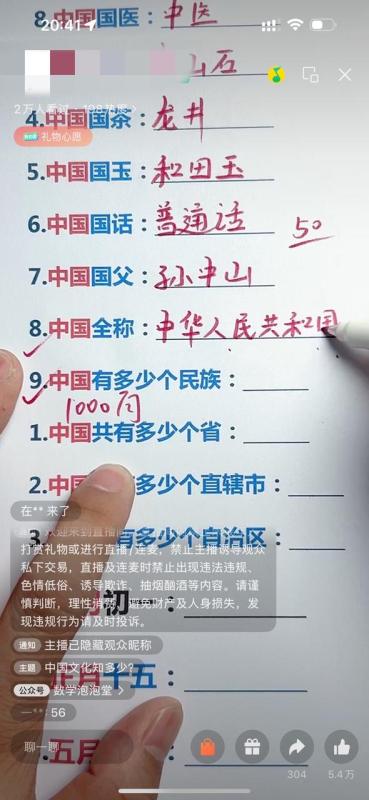 20:41
50
8.中国国医：中医
山石
2万人看过
4.中国国茶：龙井
礼物心愿
5.中国国玉：和田玉
6.中国国话：普通话
50
7.中国国父：孙中山
8.中国全称：中华人民共和国
9.中国有多少个民族：
1000问
1.中国共有多少个省：
2.中国有多少个直辖市：
在** 来了
3.有多少个自治区：
打赏礼物或进行直播/连麦，禁止主播诱导观众
私下交易，直播及连麦时禁止出现违法违规、
色情低俗、诱导欺诈、抽烟酗酒等内容。请谨
慎判断，理性消费，避免财产及人身损失，发
现违规行为请及时投诉。
初一：
通知 主播已隐藏观众昵称
主题 中国文化知多少？
正月十五：
公众号 数学泡泡堂 >
一**: 56
聊一聊
五月
304
5.4万